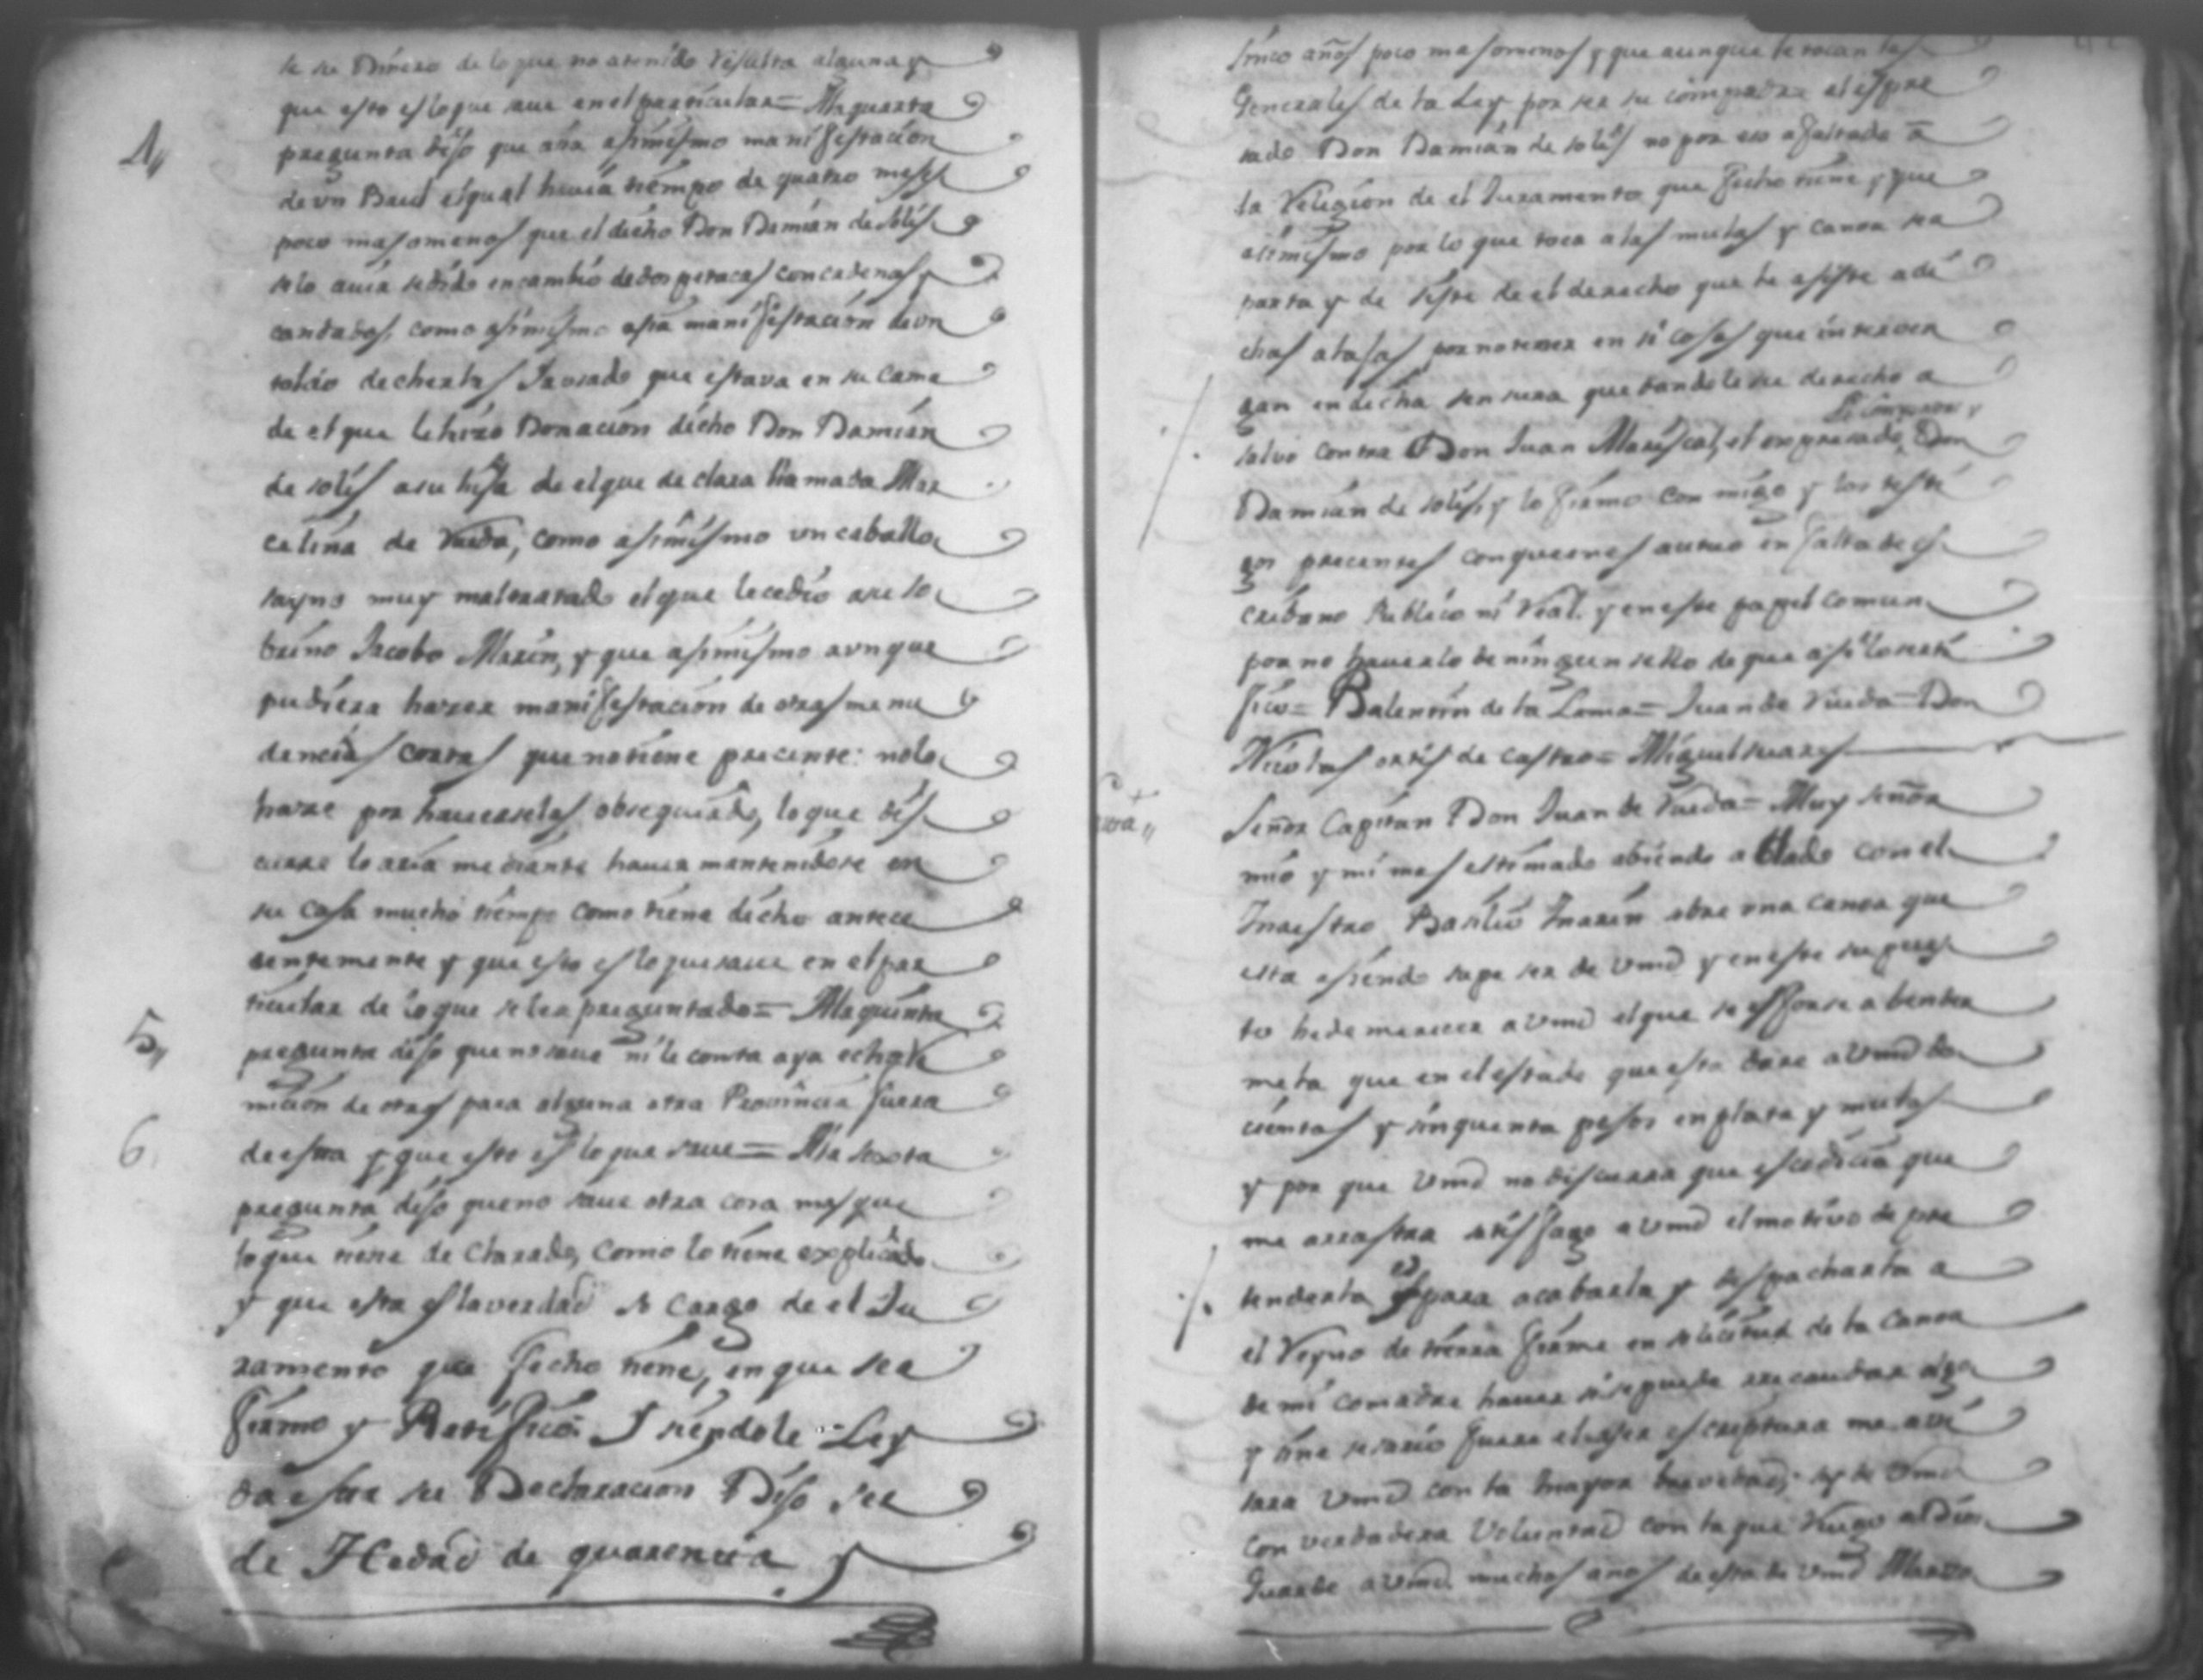 de su Dinero de lo que no atenido resulta alguna y
que esto es lo que save en el particular= Ala quarta
4,,
pregunta dijo que asia asimismo manifestacion
de un Baul el qual hauia tiempo de quatro meses
poco mas omenos que el dicho Don Damian de Solis
se lo auia sedido en cambio de dos petacas con cadenas y
candados, como asimismo asia manifestacion de un
toldo de cherlas que estava en su cama
de el que le hizo Donacion dicho Don Damian
de solis a su hija de el que declara llamada Mar
celina de Rueda, como asimismo un caballo
sayno muy maltratado el que le cedio a su so
brino Jacobo Marin, y que asimismo aunque
pudiera hazer manifestacion de otras menu
dencias cortas que no tiene precente: no lo
haze por hauerselas obsequiado, lo que dis
curre lo aria mediante hauer mantenidose en
su casa mucho tiempo como tiene dicho antece
dentemente y que esto es lo que saue en el par
ticular de lo que se le a preguntado= Ala quinta
5,,
pregunta dijo que no saue ni le consta aya echo re
micion de otras para alguna otra Provincia fuera
6,
de esta y que esto es lo que saue= Ala sexta
pregunta dijo que no saue otra cosa mas que
lo que tiene declarado, como lo tiene explicado
y que esta es la verdad so cargo de el Ju
ramento que fecho tiene, en que se a
firmo y Ratifico. I siendole Ley
da esta su Declaracion Dijo ser
de Hedad de quarenta y
sinco años poco mas omenos y que aunque le tocan las
Generales de la Ley por ser su compadre el espre
sado Don Damian de solis no por eso a faltado a
la Religion de el Juramento que fecho tiene y que
asimismo por lo que toca a las mulas y canoa se a
parta y de siste de el derecho que le asiste a di
chas alajas por no tener en si cosas que interven
gan en dicha sensura quedandole su derecho a
salvo contra Don Juan Mariscal, el expresado Don
Damian de solis, y lo firmo con migo y los testi
gos precentes con quienes actuo en falta de es
cribano Publico ni Real. y en este papel comun
por no hauerlo de ningun sello de que asi lo serti
fico= Balentin de la Loma= Juan de Rueda= Don
Nicolas ortis de castro= Miguel suares
Señor Capitan Don Juan de Rueda= Muy señor
mio y mi mas estimado abiendo ablado con el
Maestro Basilio Marin sobre una canoa que
esta asiendo supe ser de Vmd y en este supues
to he de merecer a Vmd el que se esfforse a bender
mela que en el estado que esta dare a Vmd do
cientos y sinquenta pesos en plata y mulas
y por que Vmd no discurra que es codicia que
me arrastra satisfago a Vmd el motivo de pre
tenderla es para acabarla y despacharla a
el Reyno de tierra firme en solicitud de la canoa
de mi comadre hauer si se puede recaudar algo
y si ne sesario fuere el aser escriptura me avi
sara Vmd con la mayor brevedad,
con verdadera Voluntad con la que Ruego a Dios
Guarde a Vmd muchos años de esta de Vmd Marzo